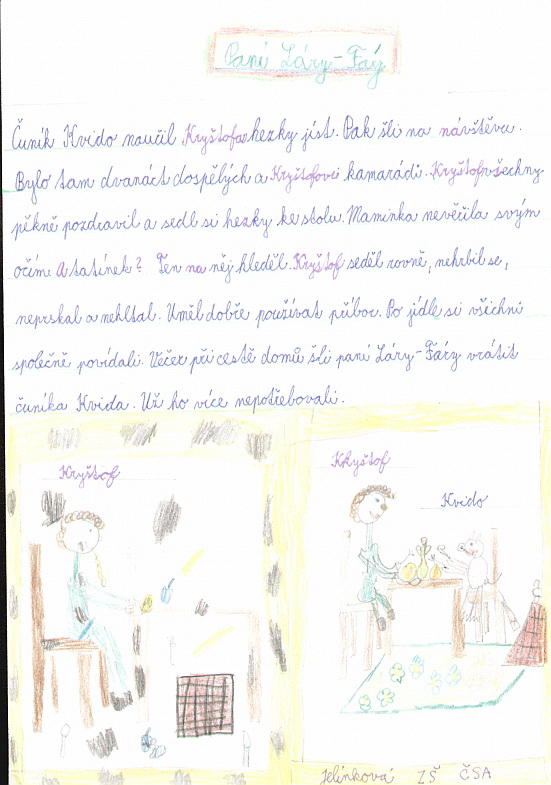 Paní Láry-Fáry
Čuník Kvido naučil Kryštofa hezky jíst. Pak šli na návštěvu.
Bylo tam dvanáct dospělých a Kryštofovi kamarádi. Kryštof všechny
pěkně pozdravil a sedl si hezky ke stolu. Maminka nevěřila svým
očím A tatínek? Ten na něj hleděl. Kryštof seděl rovně, nehrbil se,
neprskal a nehltal. Uměl dobře používat příbor. Po jídle si všichni
společně povídali. Večer při cestě domů šli paní Láry-Fáry vrátit
čuníka Kvida. Už ho více nepotřebovali.
Kryštof
Kryštof
Kvido
Jelínková ZŠ ČSA